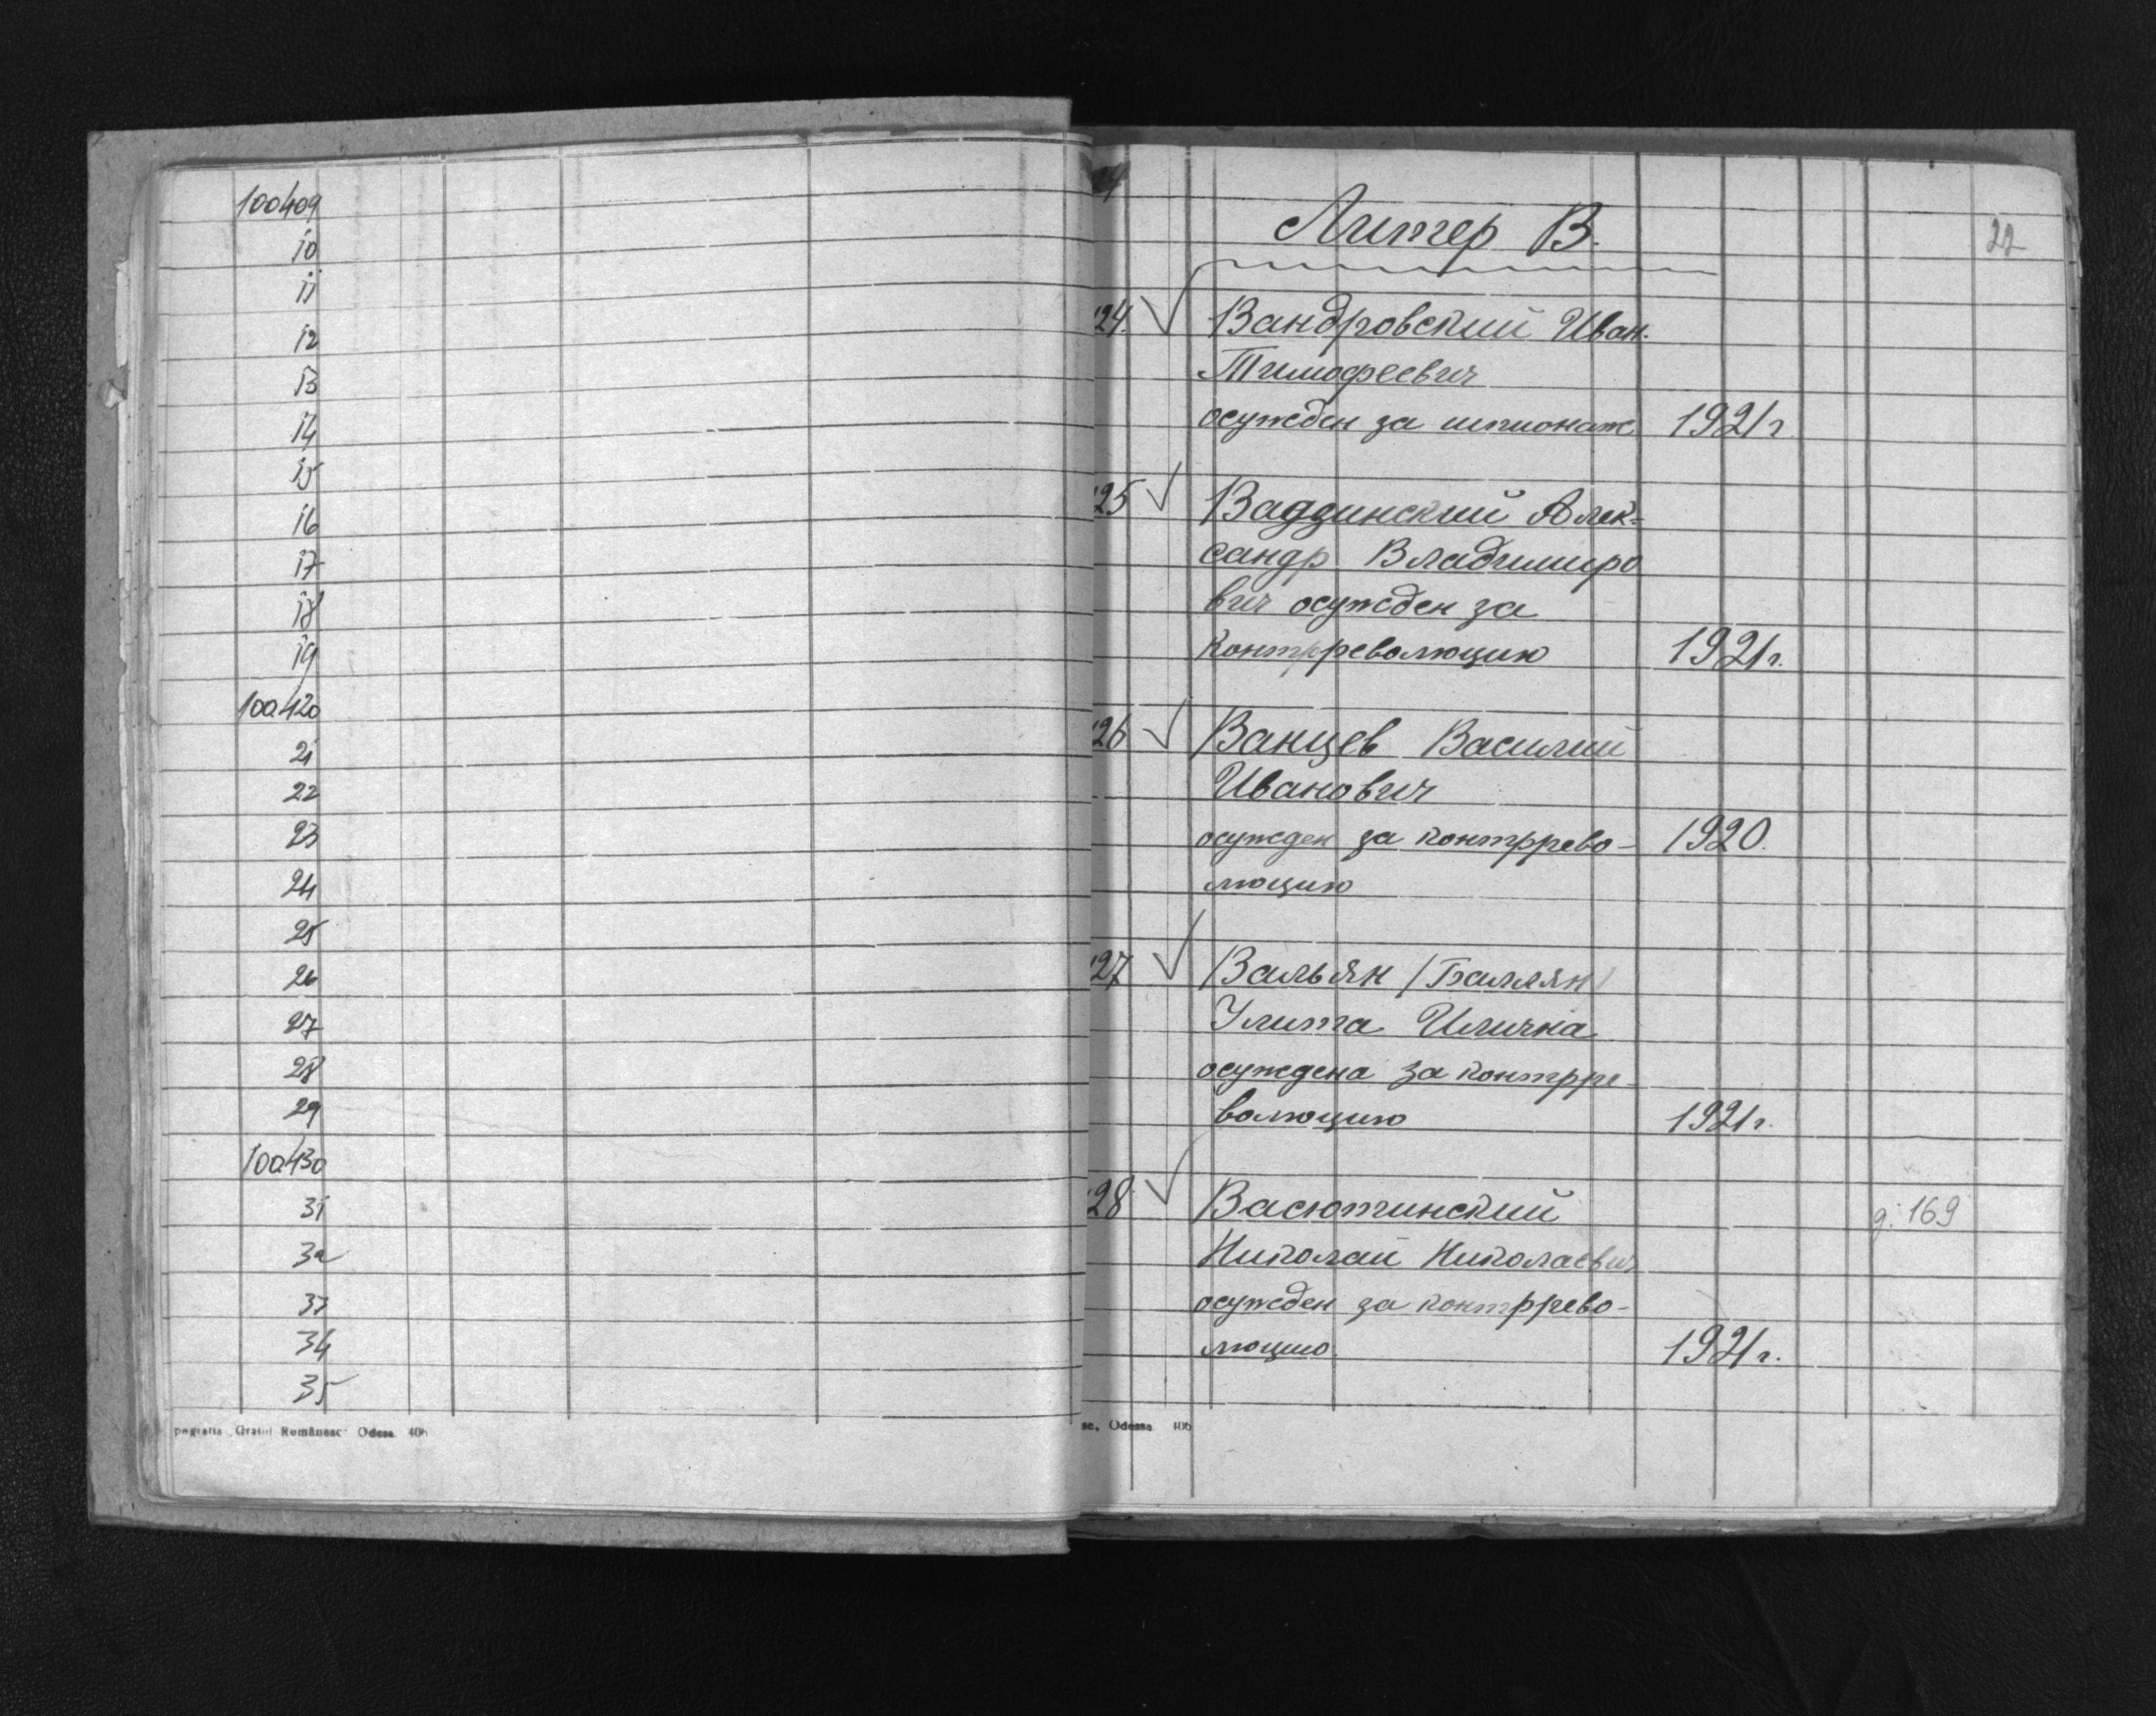 100409
10
11
12
13
14
15
16
17
18
19
100420
21
22
23
24
25
26
27
28
29
100430
31
32
33
34
35
Românesc Odesa 406
Литер В.
22
24. Вандровский Иван.
Тимофеевич
осужден за шпионаж 1921г
25 Ваддинский Алек-
сандр Владимиро
вич осужден за
контрреволюцию 1921г.
26 Ванцев Василий
Иванович
осужден за контррево- 1920.
люцию
27 Вальян /Баллян/
Улита Илична
осуждена за контрре-
волюцию 1921г.
28 Васютинский д. 169
Николай Николаевич
осужден за контррево-
люцию 1921г.
sc, Odessa 406